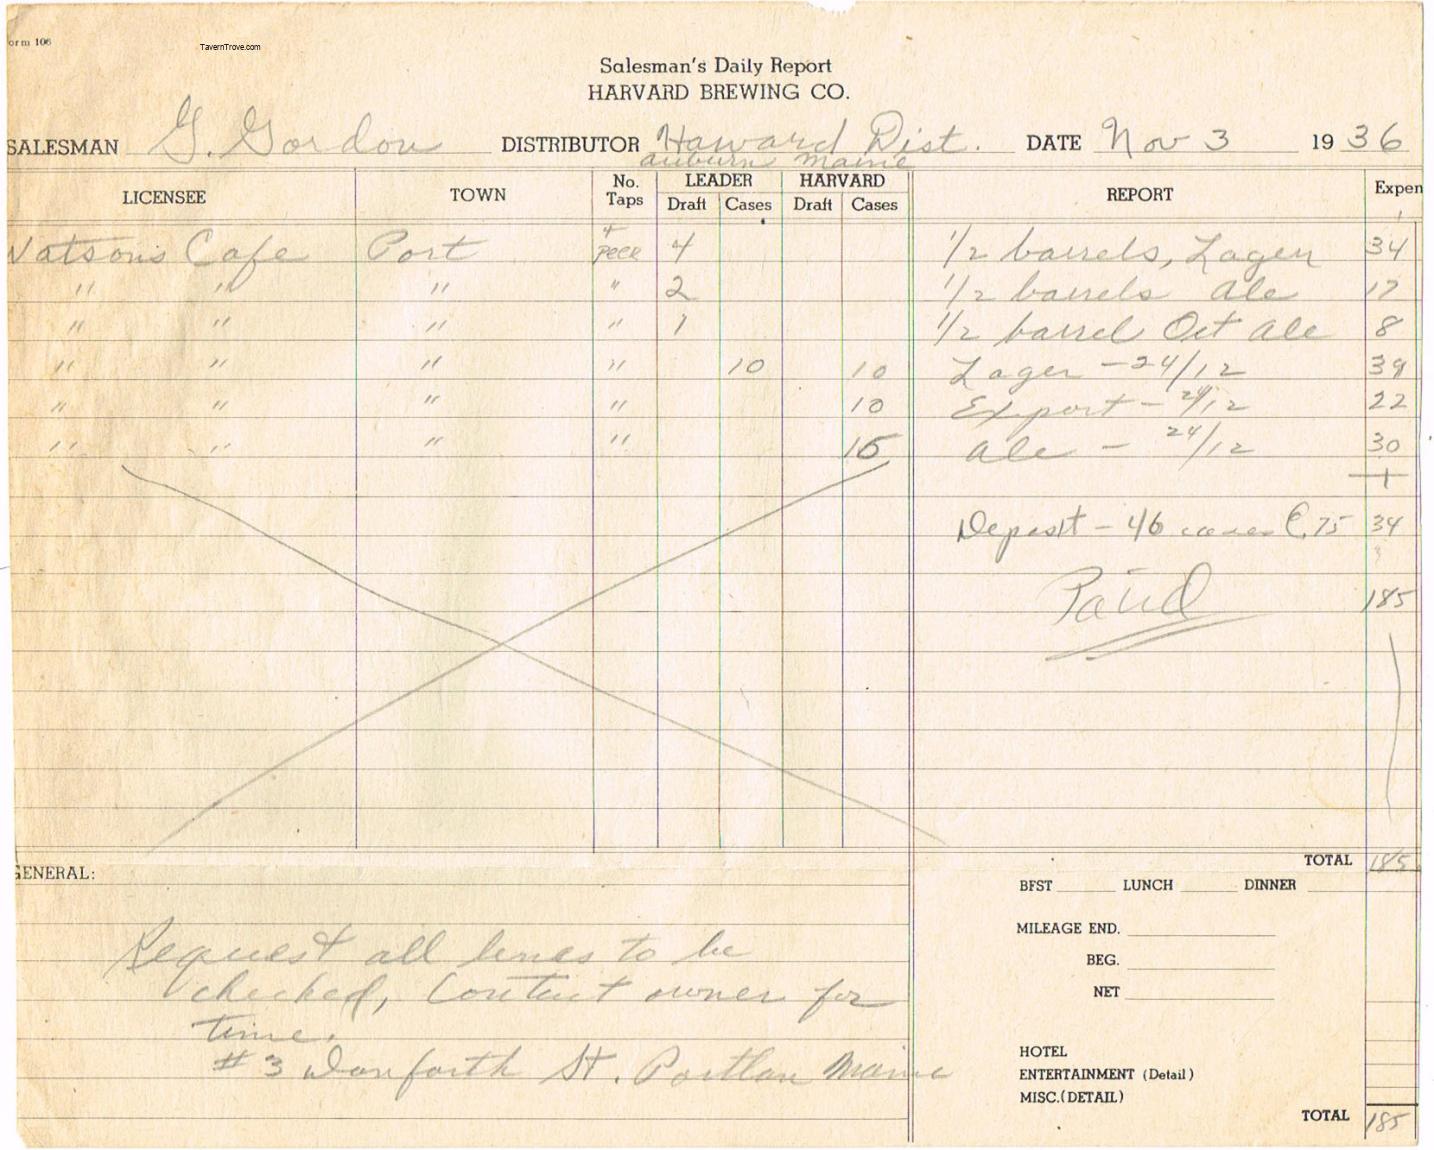 orm 106
TavernTrove.com
Salesman's Daily Report
HARVARD BREWING CO.
SALESMAN G. Gordon DISTRIBUTOR Howard Dist. DATE Nov 3 1936
auburn maine
LICENSEE TOWN No. Taps LEADER Draft Cases HARVARD Draft Cases REPORT Expen
Watsons Cafe Port 4 1/2 barrels, Lager 34
" " " " 2 1/2 barrels ale 17
" " " " 1 1/2 barrel Oct ale 8
" " " " 10 10 Lager - 24/12 39
" " " " 10 Export - 24/12 22
" " " " 15 ale - 24/12 30
Deposit - 46 cases @ 75 34
Paid 185
TOTAL 185
GENERAL: BFST LUNCH DINNER
MILEAGE END.
Request all lines to be
BEG.
checked, Contact owner for
NET
time.
HOTEL
#3 Danforth St. Portlan Maine
ENTERTAINMENT (Detail)
MISC.(DETAIL)
TOTAL 185